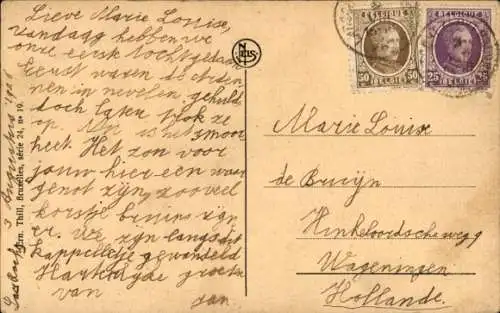 Lieve Marie Louise,
vandaag hebben we
onze eerste tocht gedaan
Eerst waren de Arden-
nen in nevelen gehuld
doch later trok ze
op. Nu is het smoor
heet. Het zon voor
jouw hier een waar
genot zijn, zooveel
korstjebruins zijn
er. We zijn langs dit
kapelletje gewandeld
Hartelijke groeten
van Jan
3 Augustus 1926
Ern. Thill, Bruxelles, série 24, no 19.
NELS
BELGIQUE
50 50
BELGIE
BELGIQUE
25 25
BELGIE
Marie Louise
de Bruijn
Hinkeloordscheweg 9
Wageningen
Hollande.